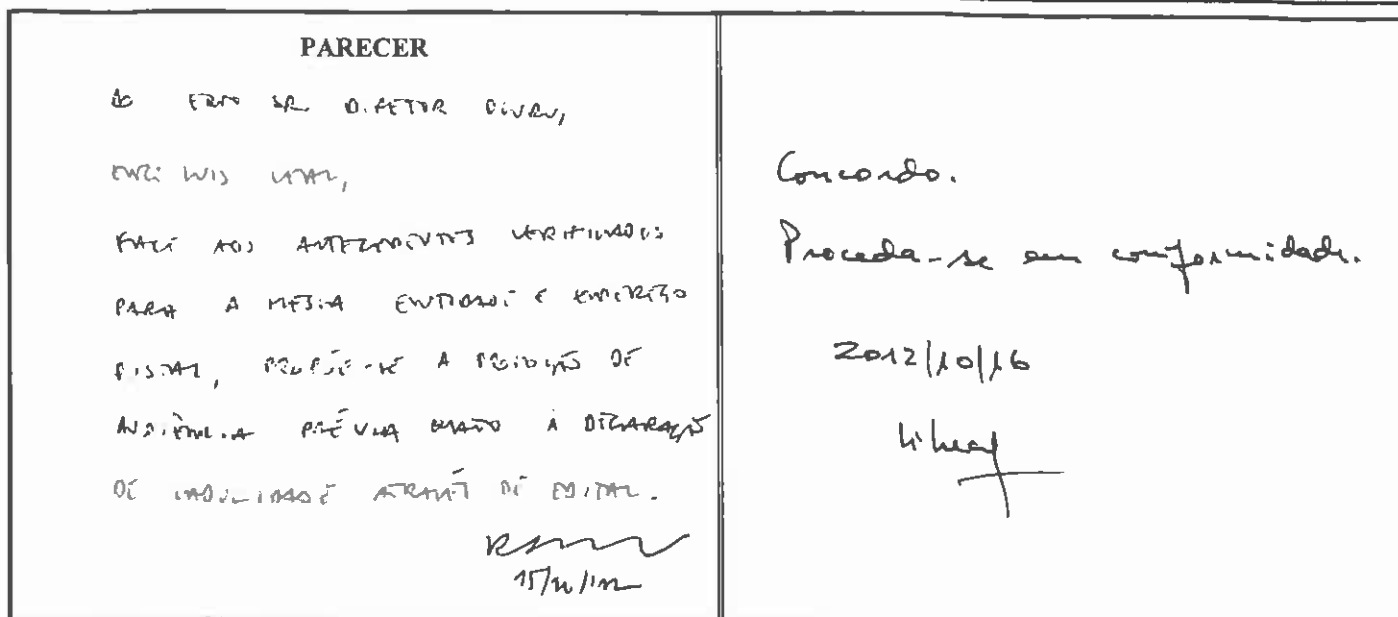 PARECER
AO EXMO SR. DIRETOR
FACE AOS ANTECEDENTES VERIFICADOS
PARA A MESMA ENTIDADE E ENDEREÇO
POSTAL, PROPÕE-SE A DE
AUDIÊNCIA PRÉVIA QUANTO À DECLARAÇÃO
DE CADUCIDADE ATRAVÉS DE EDITAL.
Concordo.
Proceda-se em conformidade.
2012/10/16